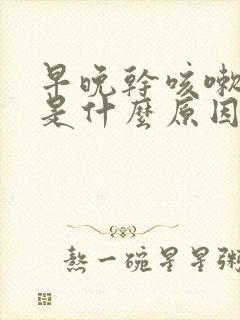 早晚幹咳嗽
是什麼原因
熬一碗星星粥